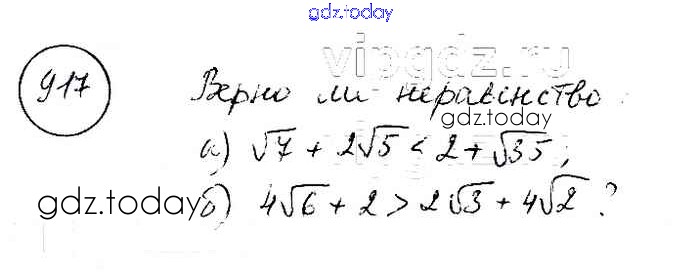 gdz.today
vipgdz.ru
917 Верно ли неравенство:
gdz.today
а) √7 + 2√5 < 2 + √35;
gdz.today
б) 4√6 + 2 > 2√3 + 4√2 ?